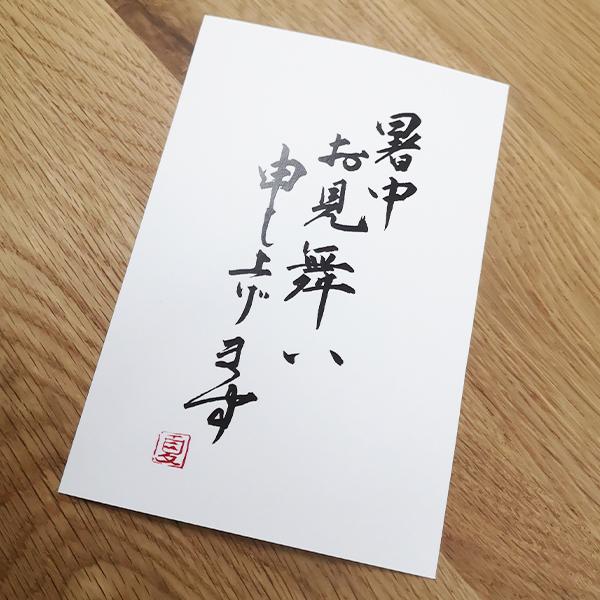 暑中
お見舞い
申し上げます
夏